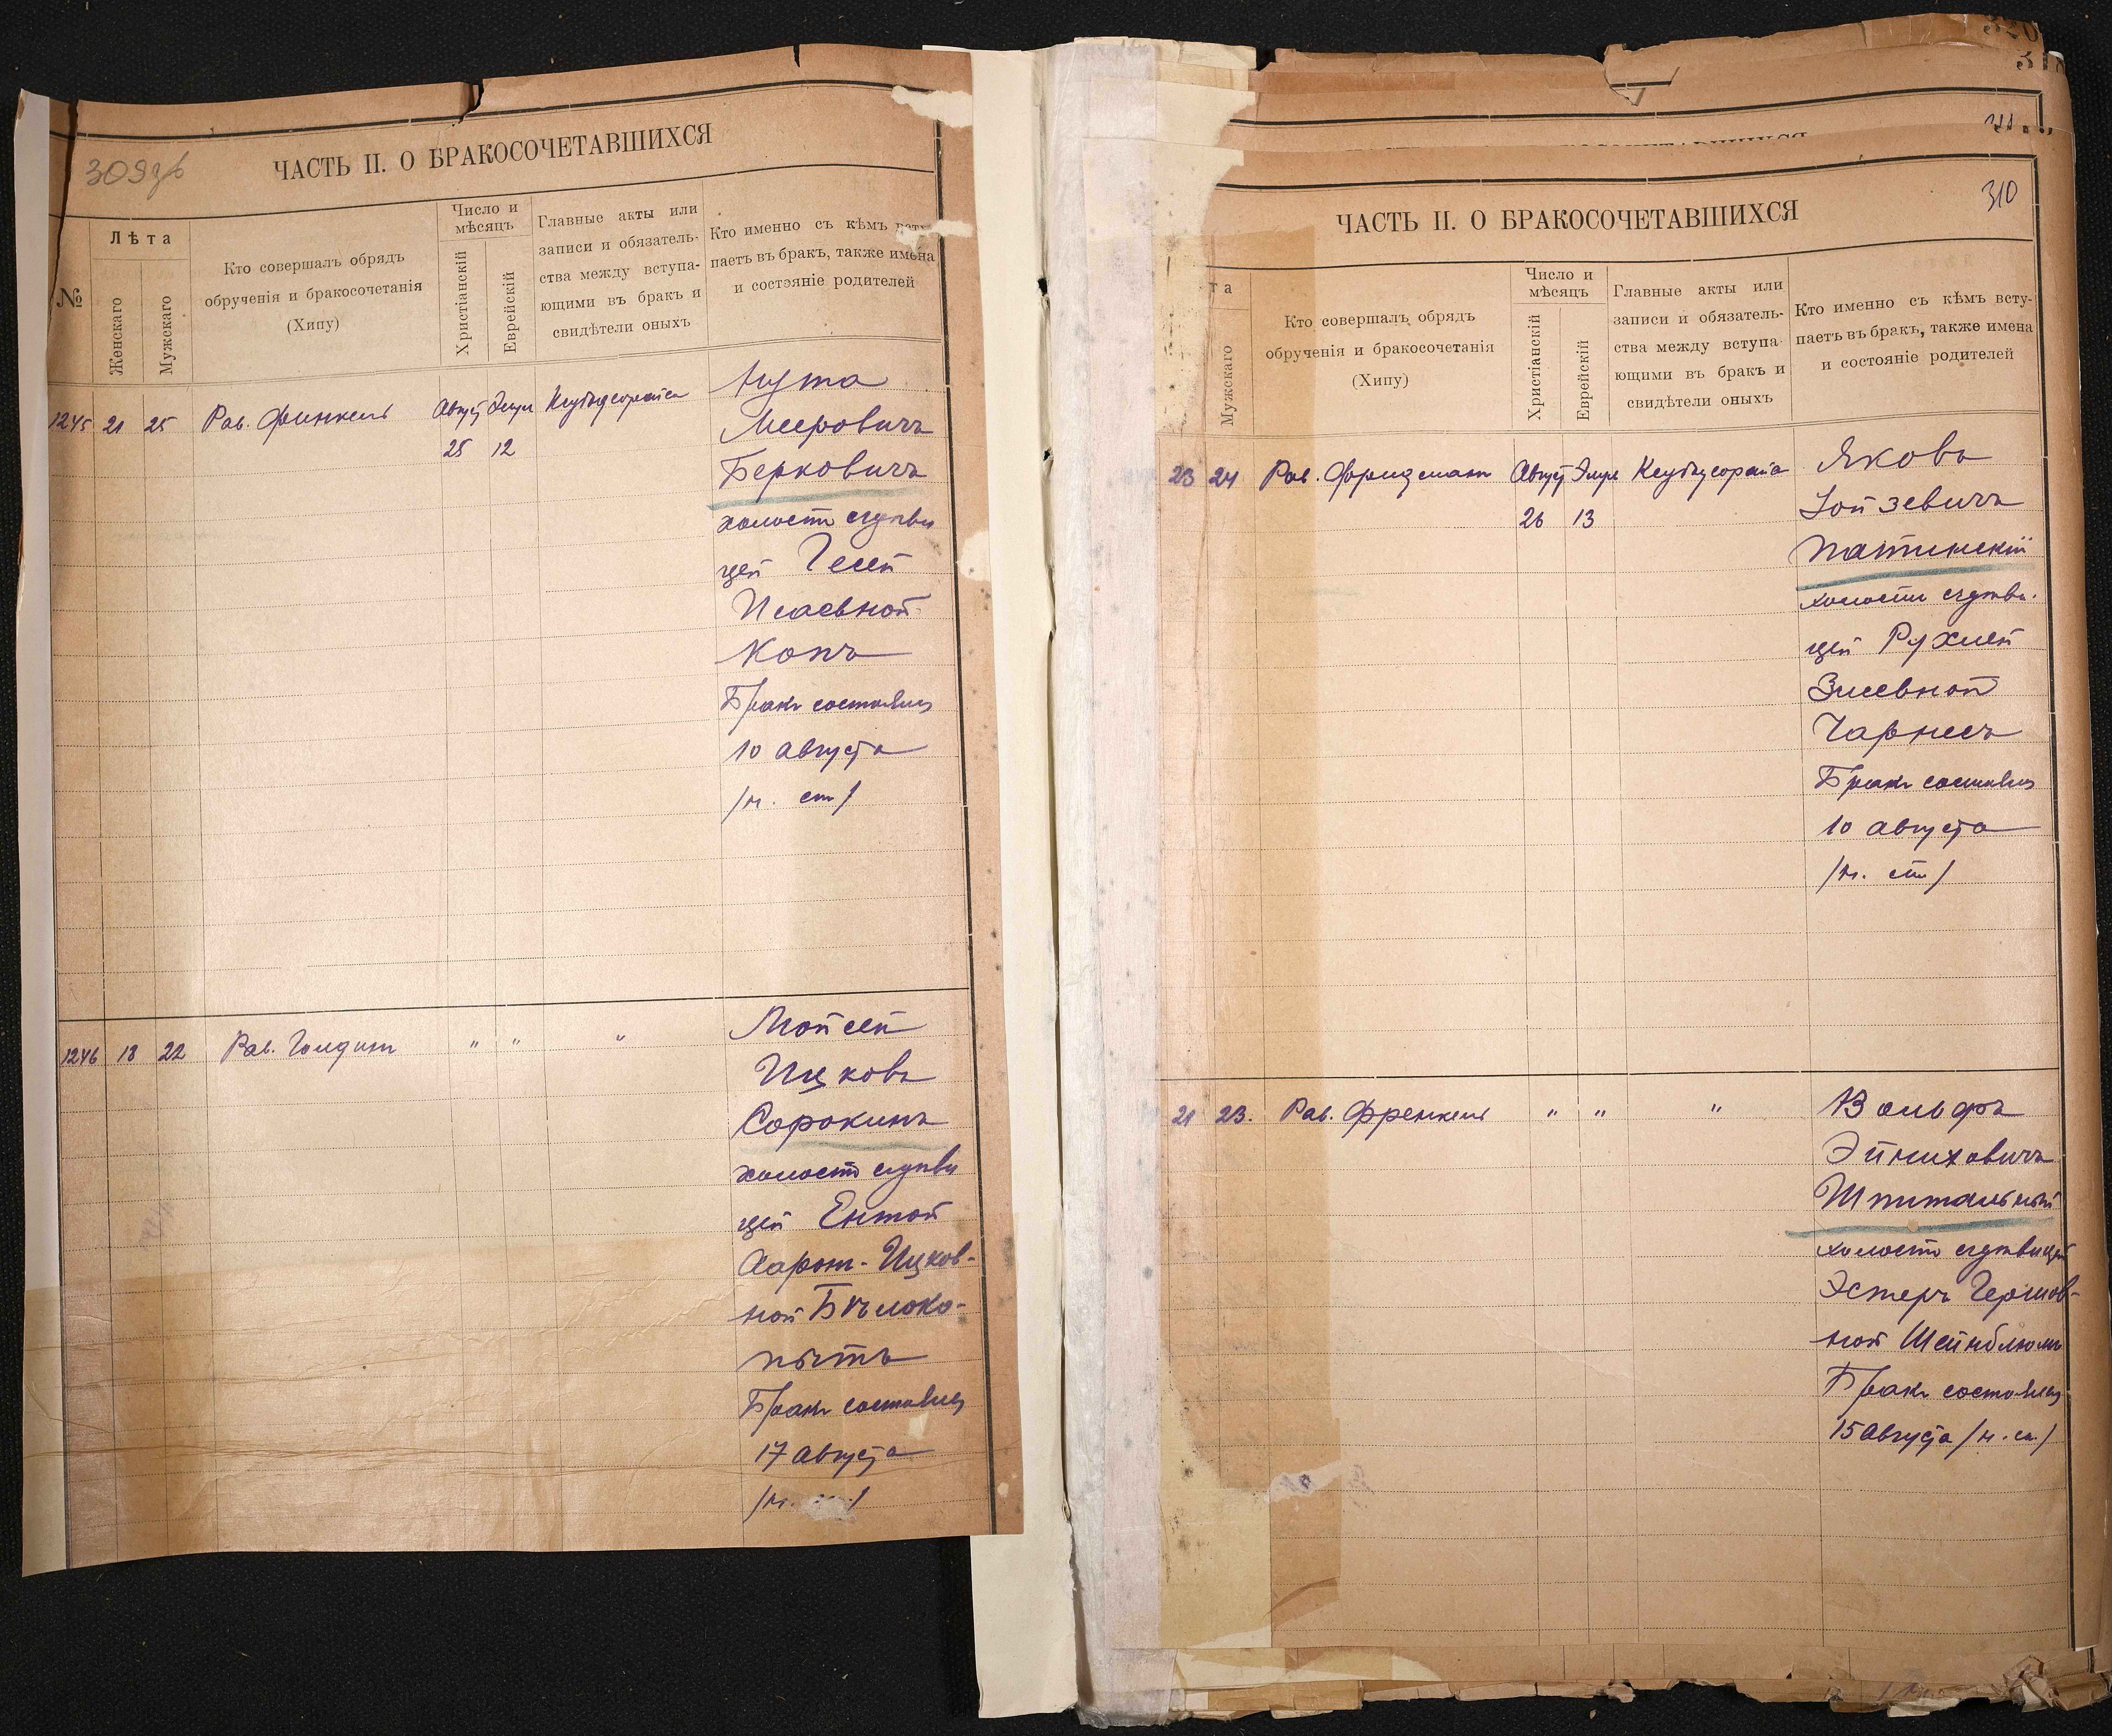 309об
ЧАСТЬ II. О БРАКОСОЧЕТАВШИХСЯ
№
Лѣта
Женскаго
Мужскаго
Кто совершалъ обрядъ
обрученія и бракосочетанія
(Хипу)
Число и
мѣсяцъ
Христіанскій
Еврейскій
Главные акты или
записи и обязатель-
ства между вступа-
ющими въ бракъ и
свидѣтели оныхъ
Кто именно съ кѣмъ всту-
паетъ въ бракъ, также имена
и состояніе родителей
1245 21 25 Рав. Финкель Август Элул
25 12
Мееровичъ
Берковичъ
холост съ дѣви
цей Гесей
Исаевной
Копъ
Бракъ состоялся
10 августа
/н. ст/
1246 18 22 Рав. Голдин " " "
Мойсей
Ицковъ
Сорокинъ
холост съ дѣви
цей Ентой
Аарон-Ицков-
ной Бѣлоко-
пытъ
Бракъ состоялся
17 августа
/н. ст./
310
ЧАСТЬ II. О БРАКОСОЧЕТАВШИХСЯ
та
Мужскаго
Кто совершалъ обрядъ
обрученія и бракосочетанія
(Хипу)
Число и
мѣсяцъ
Христіанскій
Еврейскій
Главные акты или
записи и обязатель-
ства между вступа-
ющими въ бракъ и
свидѣтели оныхъ
Кто именно съ кѣмъ всту-
паетъ въ бракъ, также имена
и состояніе родителей
23 24 Рав. Фридман Август Элул
26 13
Яковъ
Іойзевичъ
Патинскій
холост съ дѣви-
цей Рухлей
Зисевной
Чарнесъ
Бракъ состоялся
10 августа
/н. ст/
21 23. Рав. Френкель " " "
Вольфъ
Эйниховичъ
Шпитальный
холост съ дѣвицей
Эстеръ Гершов-
ной Шейнблюмъ
Бракъ состоялся
15 августа /н. ст./